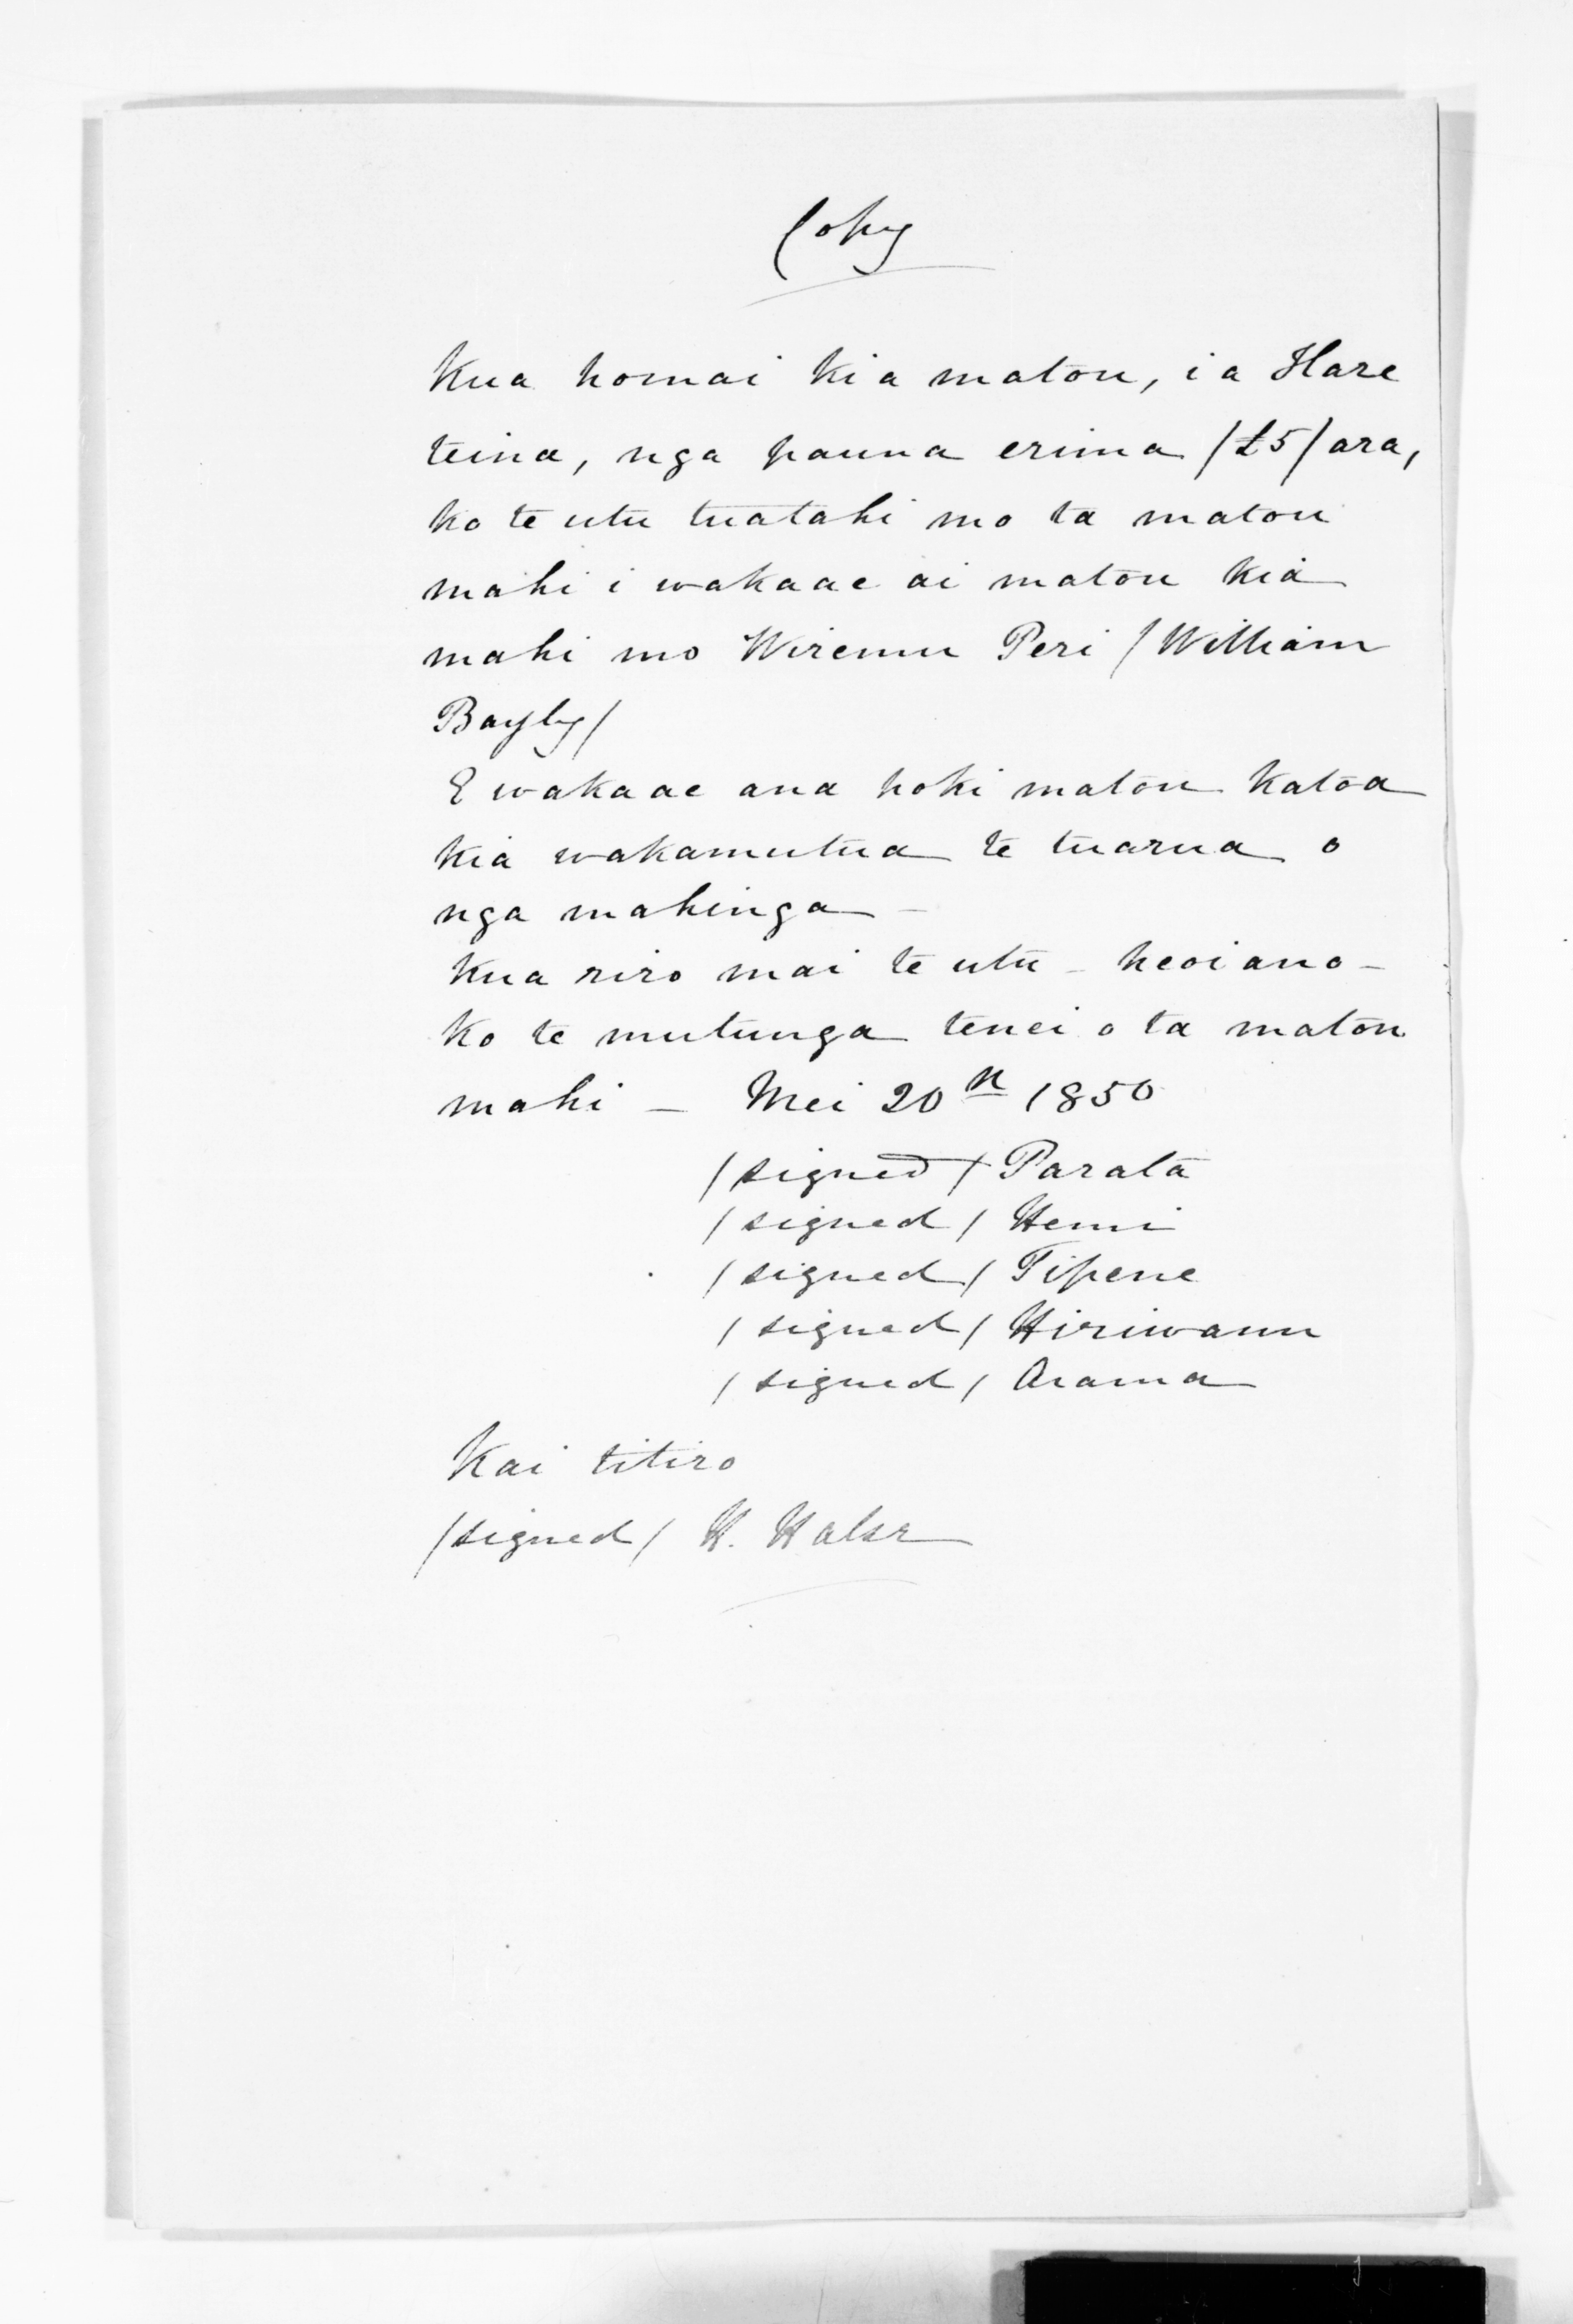 Copy
Kua homai kia matou, i a Hare
teina, nga pauna erima /£5/ ara,
ko te utu tuatahi mo ta matou
mahi i wakaae ai matou kia
mahi mo Wiremu Peri /William
Bayly/
E wakaae ana hoki matou katoa
kia wakamutua te tuarua o
nga mahinga -
Kua riro mai te utu - heoi ano -
Ko te mutunga tenei o ta matou
mahi - Mei 20th 1850
/signed/ Parata
/signed/ Hemi
/signed/ Tipene
/signed/ Hiriwanu
/signed/ Arama
Kai titiro
/signed/ H. Halse